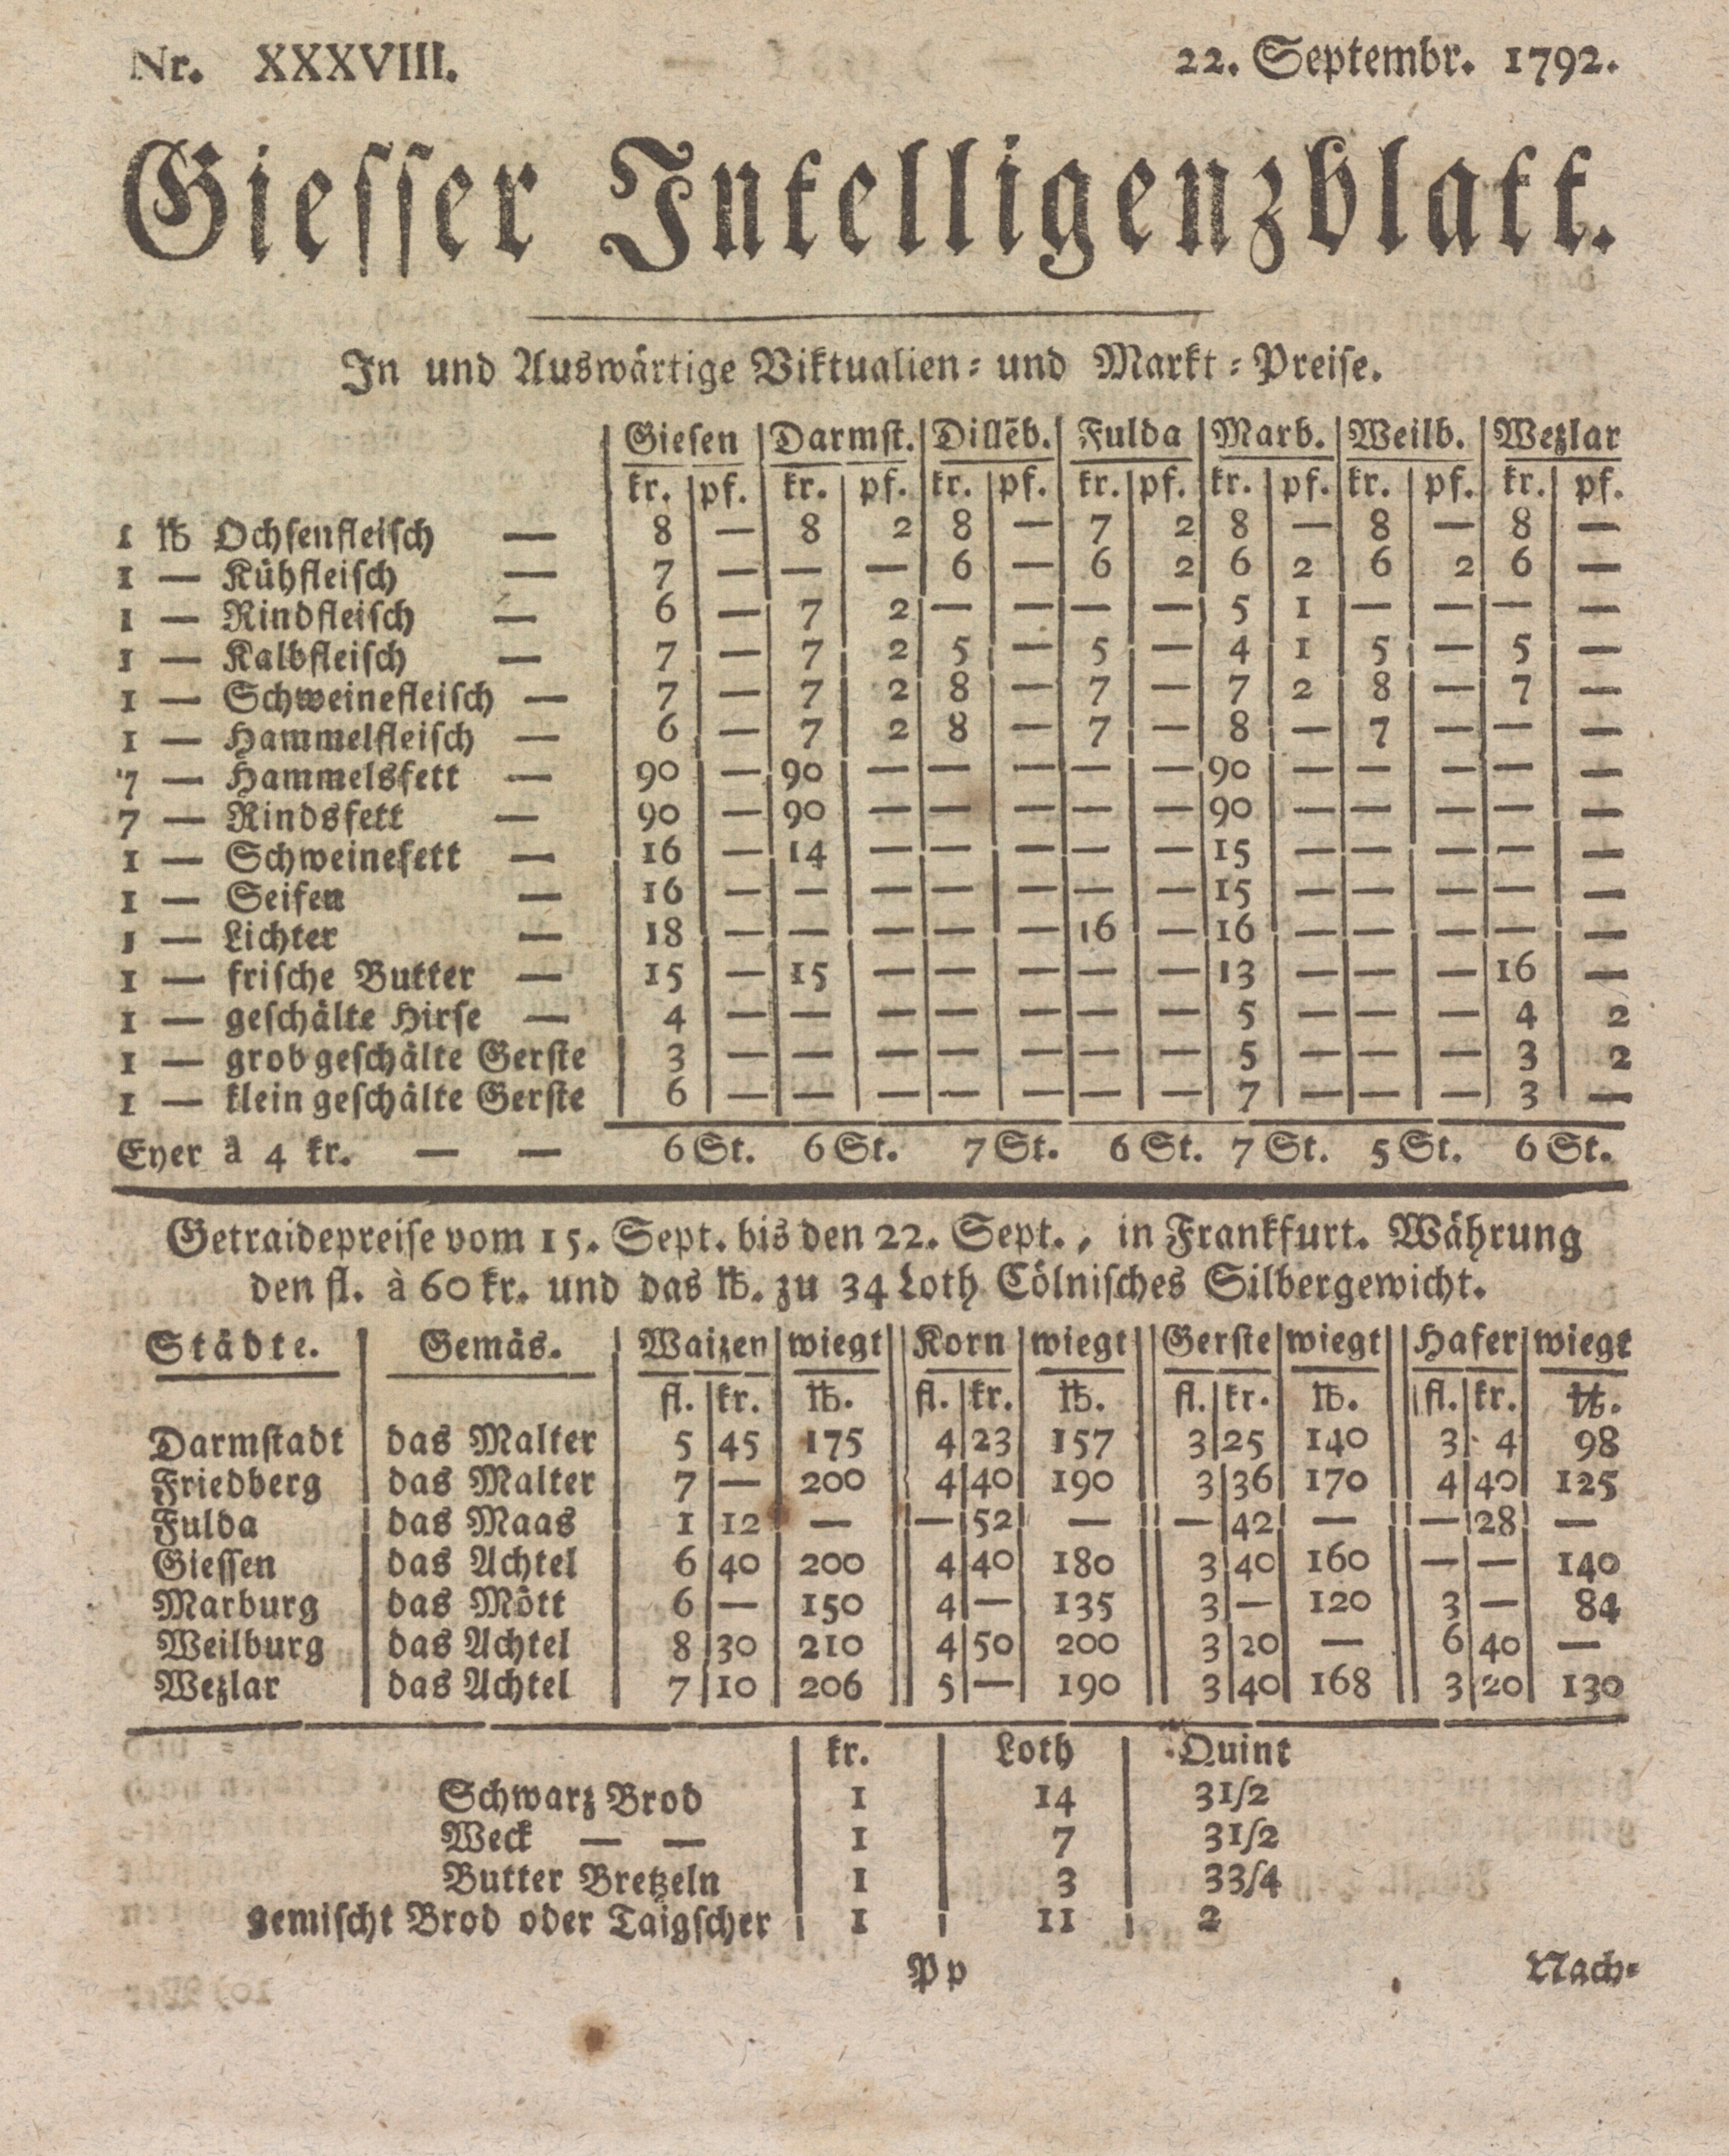 Nr. XXXVIII. 22. Septembr. 1792.
Gieſſer Intelligenzblatt.
In und Auswärtige Viktualien- und Markt-Preiſe.
Gieſen Darmſt. Dillēb. Fulda Marb. Weilb. Wetzlar
kr. pf. kr. pf. kr. pf. kr. pf. kr. pf. kr. pf. kr. pf.
1 ℔ Ochſenfleiſch — 8 — 8 2 8 — 7 2 8 — 8 — 8 —
1 — Kühfleiſch — 7 — — — 6 — 6 2 6 2 6 2 6 —
1 — Rindfleiſch — 6 — 7 2 — — — — 5 1 — — — —
1 — Kalbfleiſch — 7 — 7 2 5 — 5 — 4 1 5 — 5 —
1 — Schweinefleiſch — 7 — 7 2 8 — 7 — 7 2 8 — 7 —
1 — Hammelfleiſch — 6 — 7 2 8 — 7 — 8 — 7 — — —
7 — Hammelsfett — 90 — 90 — — — — — 90 — — — — —
7 — Rindsfett — 90 — 90 — — — — — 90 — — — — —
1 — Schweinefett — 16 — 14 — — — — — 15 — — — — —
1 — Seifen — 16 — — — — — — — 15 — — — — —
1 — Lichter — 18 — — — — — 16 — 16 — — — — —
1 — friſche Butter — 15 — 15 — — — — — 13 — — — 16 —
1 — geſchälte Hirſe — 4 — — — — — — — 5 — — — 4 2
1 — grob geſchälte Gerſte 3 — — — — — — — 5 — — — 3 2
1 — klein geſchälte Gerſte 6 — — — — — — — 7 — — — 3 —
Eyer à 4 kr. — — 6 St. 6 St. 7 St. 6 St. 7 St. 5 St. 6 St.
Getraidepreiſe vom 15. Sept. bis den 22. Sept., in Frankfurt. Währung
den fl. à 60 kr. und das ℔. zu 34 Loth Cölniſches Silbergewicht.
Städte. Gemäs. Waizen wiegt Korn wiegt Gerſte wiegt Hafer wiegt
fl. kr. ℔. fl. kr. ℔. fl. kr. ℔. fl. kr. ℔.
Darmſtadt das Malter 5 45 175 4 23 157 3 25 140 3 4 98
Friedberg das Malter 7 — 200 4 40 190 3 36 170 4 40 125
Fulda das Maas 1 12 — — 52 — — 42 — — 28 —
Gieſſen das Achtel 6 40 200 4 40 180 3 40 160 — — 140
Marburg das Mött 6 — 150 4 — 135 3 — 120 3 — 84
Weilburg das Achtel 8 30 210 4 50 200 3 20 — 6 40 —
Wetzlar das Achtel 7 10 206 5 — 190 3 40 168 3 20 130
kr. Loth Quint
Schwarz Brod 1 14 3 1/2
Weck — — 1 7 3 1/2
Butter Bretzeln 1 3 3 3/4
gemiſcht Brod oder Taigſcher 1 11 2
Pp Nach-